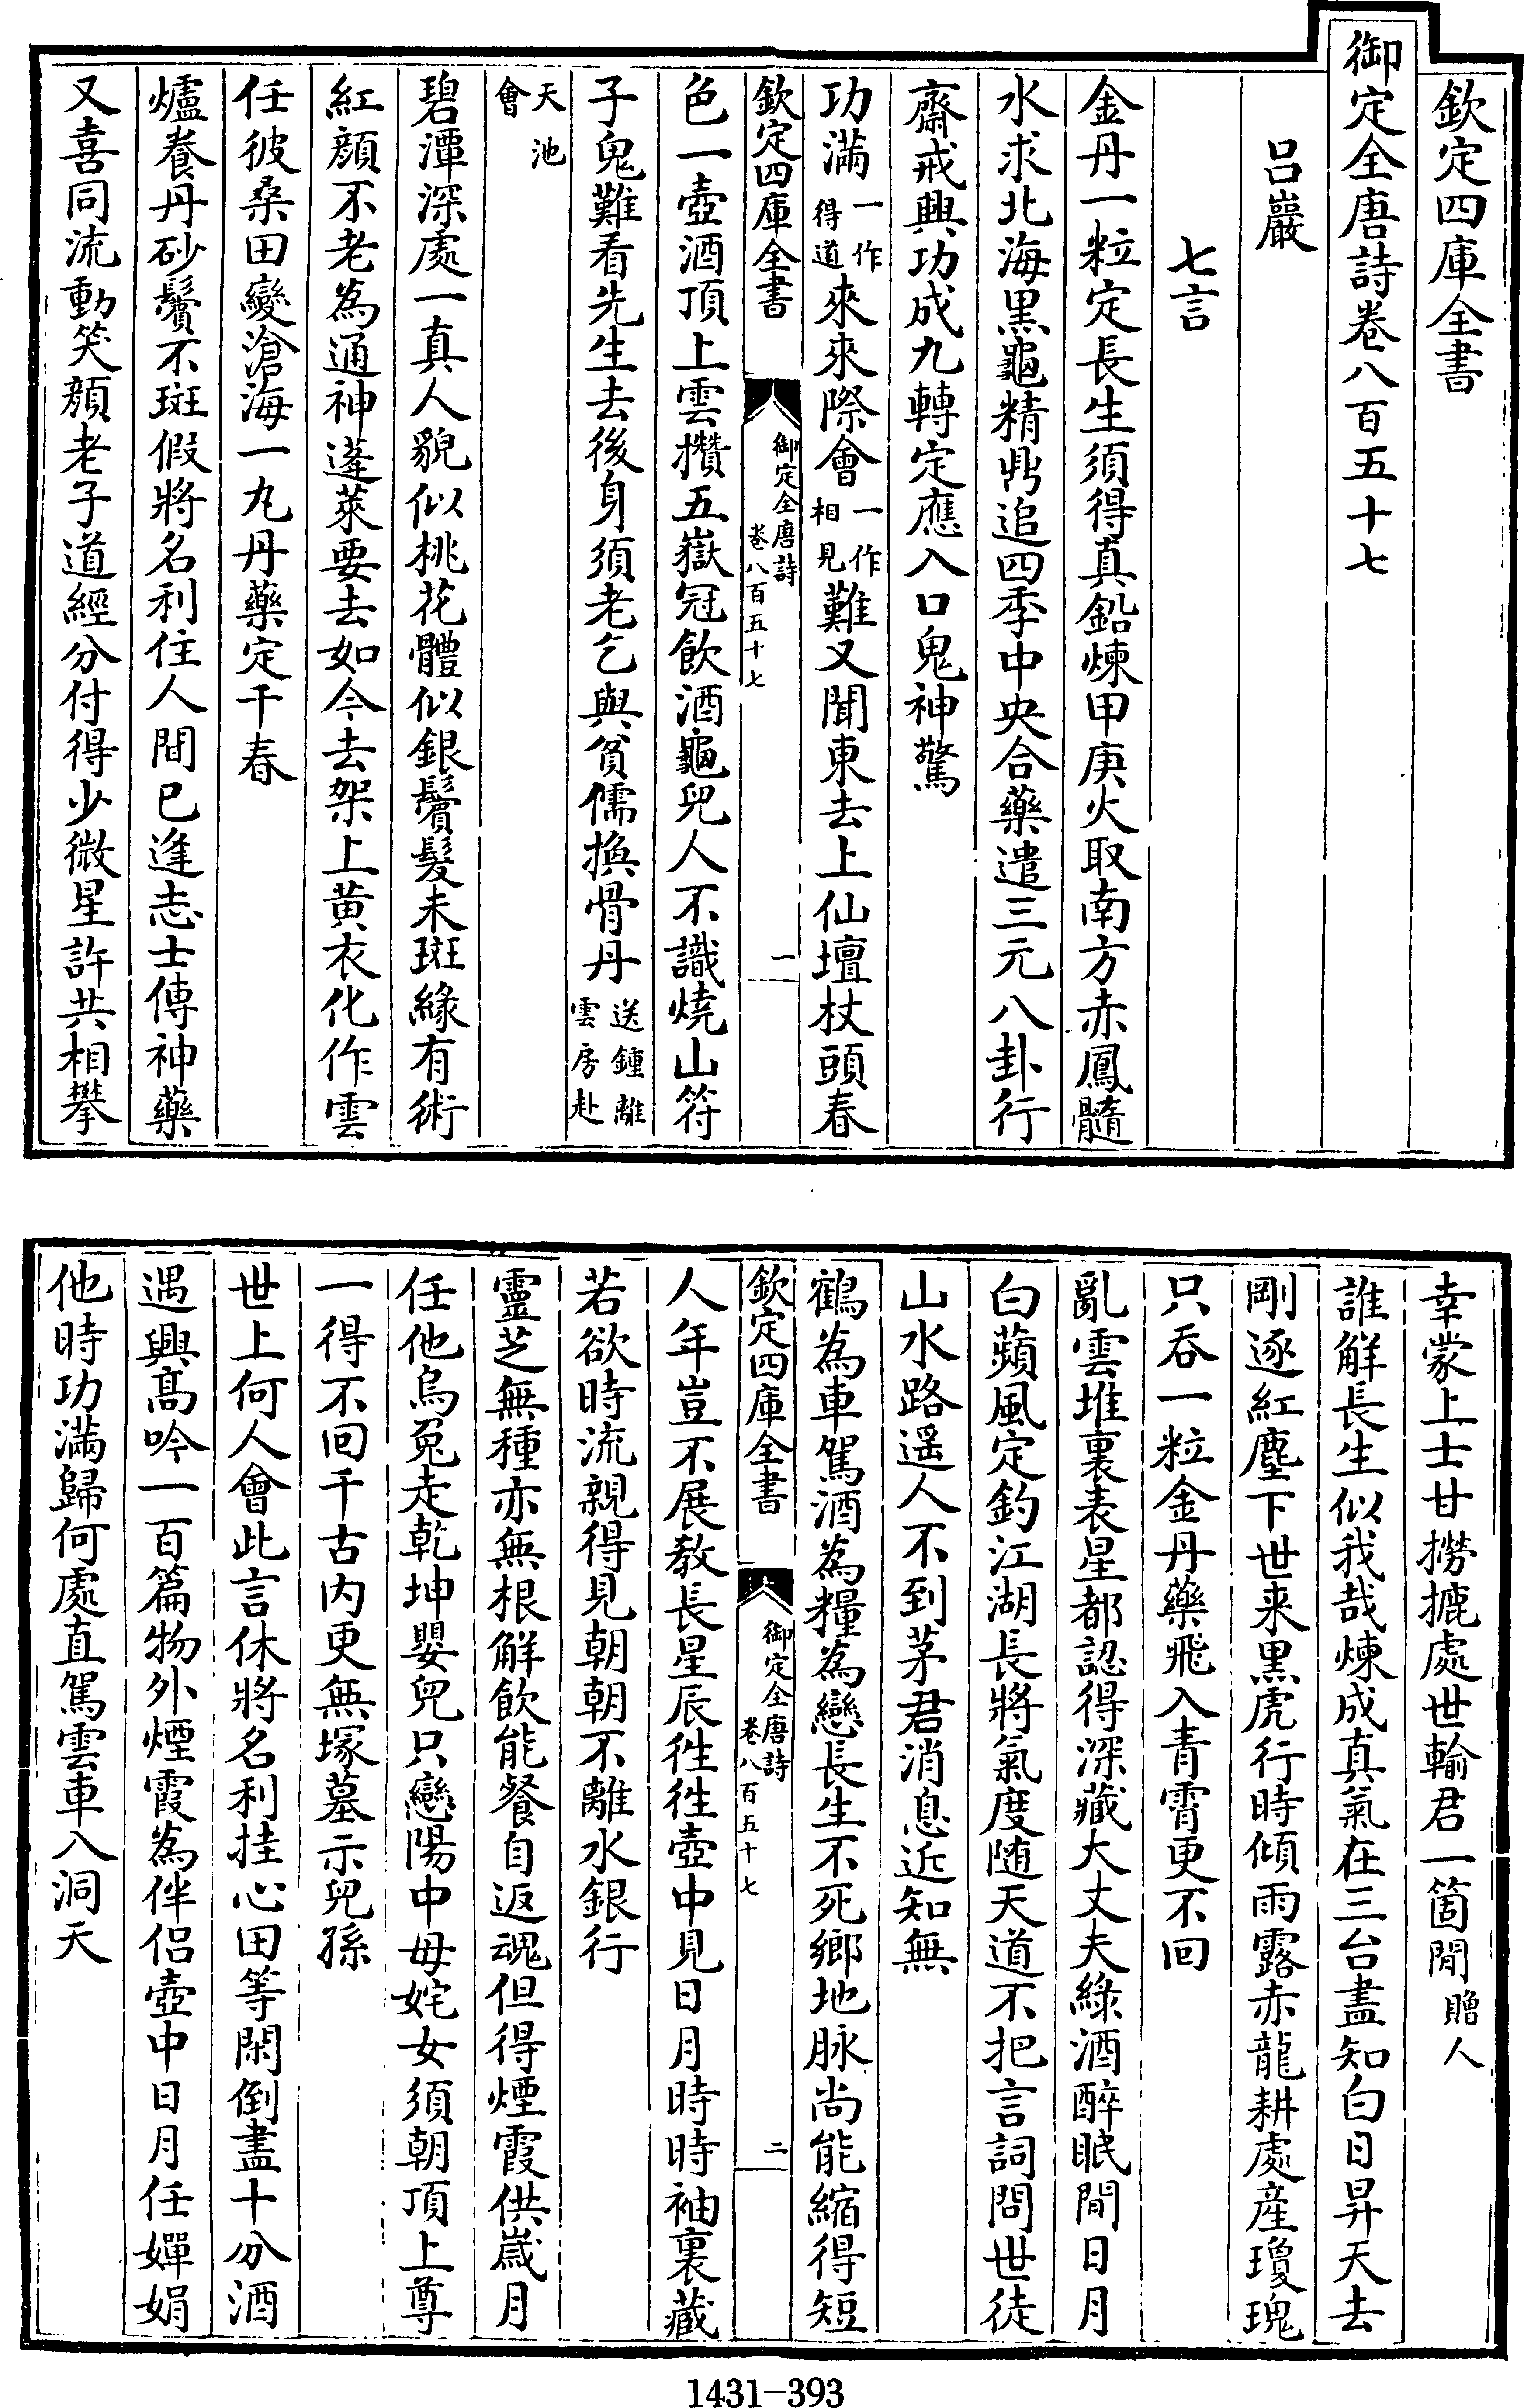 欽定四庫全書
御定全唐詩卷八百五十七
吕巖
七言
金丹一粒定長生須得真鉛煉甲庚火取南方赤鳳髓
水求北海黑龜精鼎追四季中央合藥遣三元八卦行
齋戒興功成九轉定應入口鬼神驚
功滿一作得道來來際會一作相見難又聞東去上仙壇杖頭春
欽定四庫全書
御定全唐詩
卷八百五十七
一
色一壺酒頂上雲攢五嶽冠飲酒龜兒人不識燒山符
子鬼難看先生去後身須老乞與貧儒換骨丹送鍾離雲房赴
天池會
碧潭深處一真人貌似桃花體似銀鬢髮未斑緣有術
紅顏不老為通神蓬萊要去如今去架上黄衣化作雲
任彼桑田變滄海一丸丹藥定千春
爐養丹砂鬢不斑假將名利住人間已逢志士傳神藥
又喜同流動笑顏老子道經分付得少微星許共相攀
幸蒙上士甘撈摝處世輸君一箇閒贈人
誰解長生似我哉煉成真氣在三台盡知白日昇天去
剛逐紅塵下世来黑虎行時傾雨露赤龍耕處産瓊瑰
只吞一粒金丹藥飛入青霄更不回
亂雲堆裏表星都認得深藏大丈夫綠酒醉眠閒日月
白蘋風定釣江湖長將氣度随天道不把言詞問世徒
山水路遥人不到茅君消息近知無
鶴為車駕酒為糧為戀長生不死鄉地脉尚能縮得短
欽定四庫全書
御定全唐詩
卷八百五十七
二
人年豈不展教長星辰徃徃壺中見日月時時袖裏藏
若欲時流親得見朝朝不離水銀行
靈芝無種亦無根解飲能餐自返魂但得煙霞供嵗月
任他烏兔走乾坤嬰兒只戀陽中母姹女須朝頂上尊
一得不回千古内更無塚墓示兒孫
世上何人會此言休將名利挂心田等閑倒盡十分酒
遇興髙吟一百篇物外煙霞為伴侣壺中日月任嬋娟
他時功滿歸何處直駕雲車入洞天
1431-393